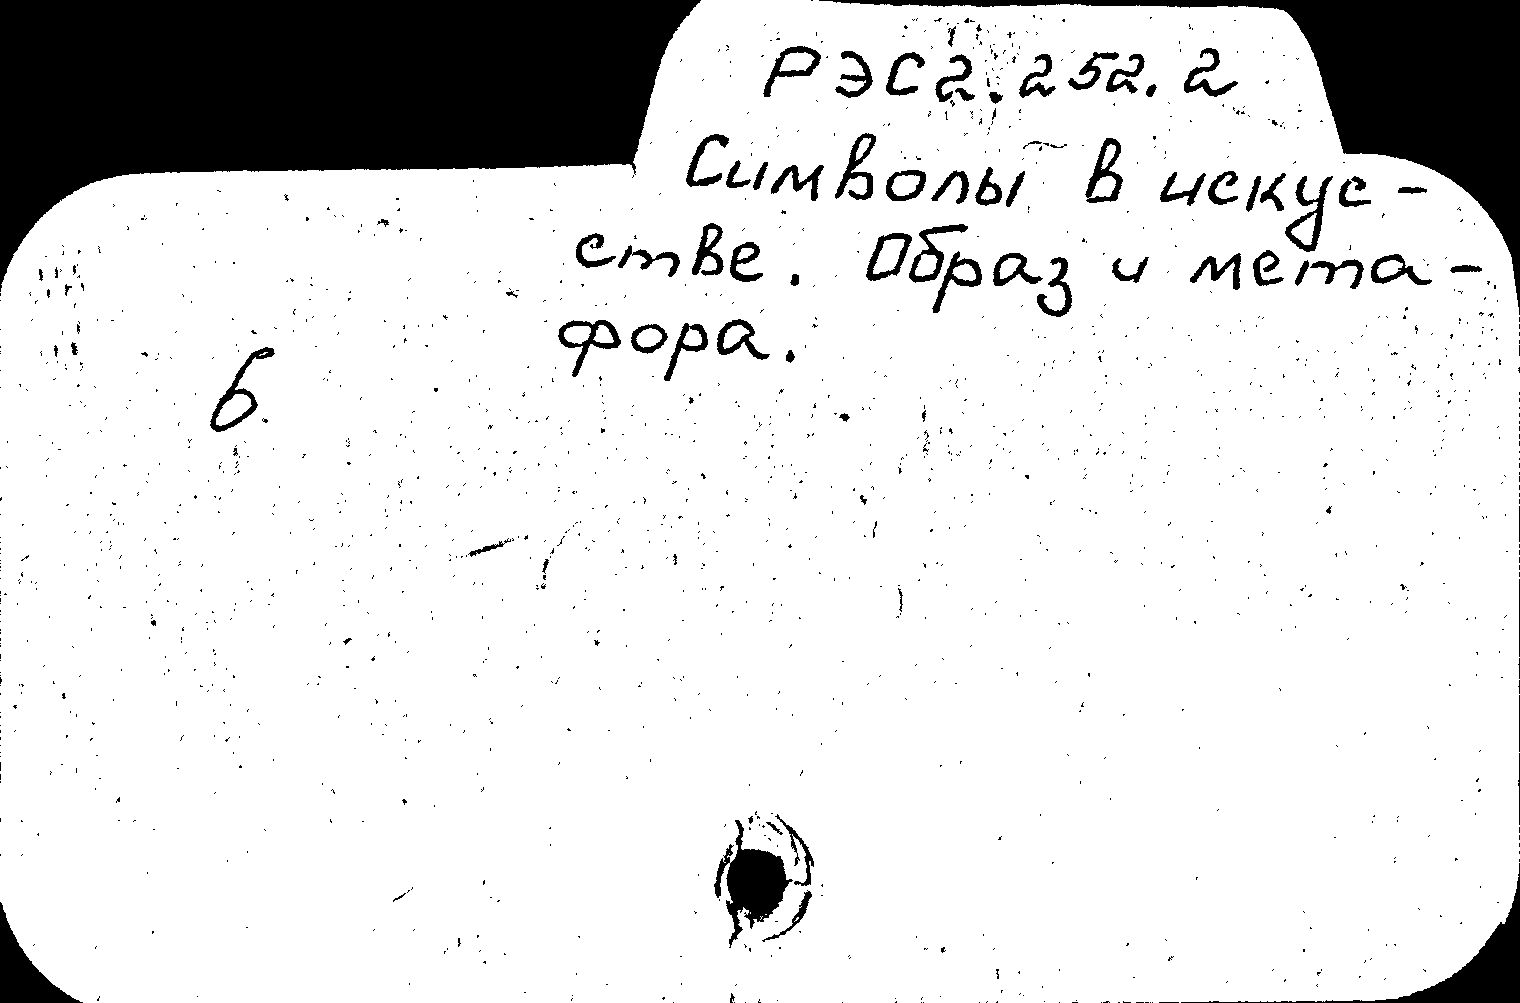 РЭС2.252.2
Символы в искус-
стве. Образ и мета-
фора.
б.